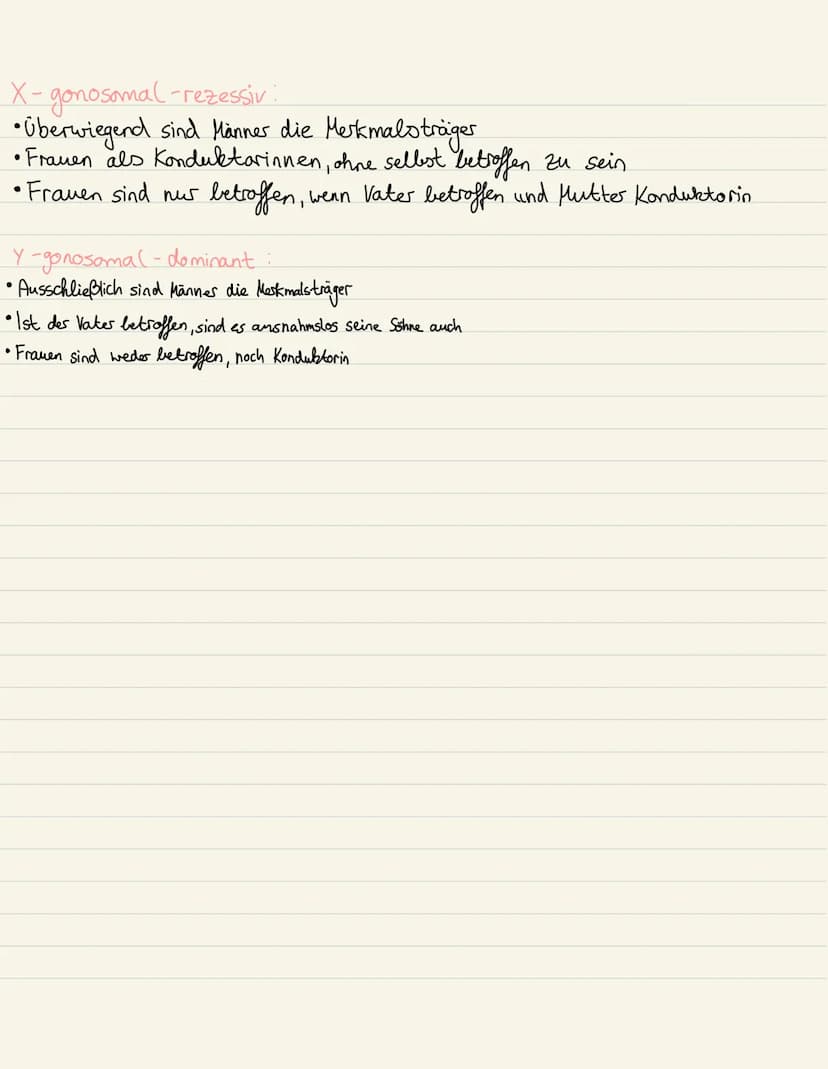 X-gonosomal-rezessiv:
• Überwiegend sind Männer die Merkmalsträger
• Frauen als Konduktorinnen, ohne selbst betroffen zu sein
• Frauen sind nur betroffen, wenn Vater betroffen und Mutter Konduktorin
Y-gonosomal-dominant:
• Ausschließlich sind Männer die Merkmalsträger
• Ist der Vater betroffen, sind es ausnahmslos seine Söhne auch
• Frauen sind weder betroffen, noch Konduktorin